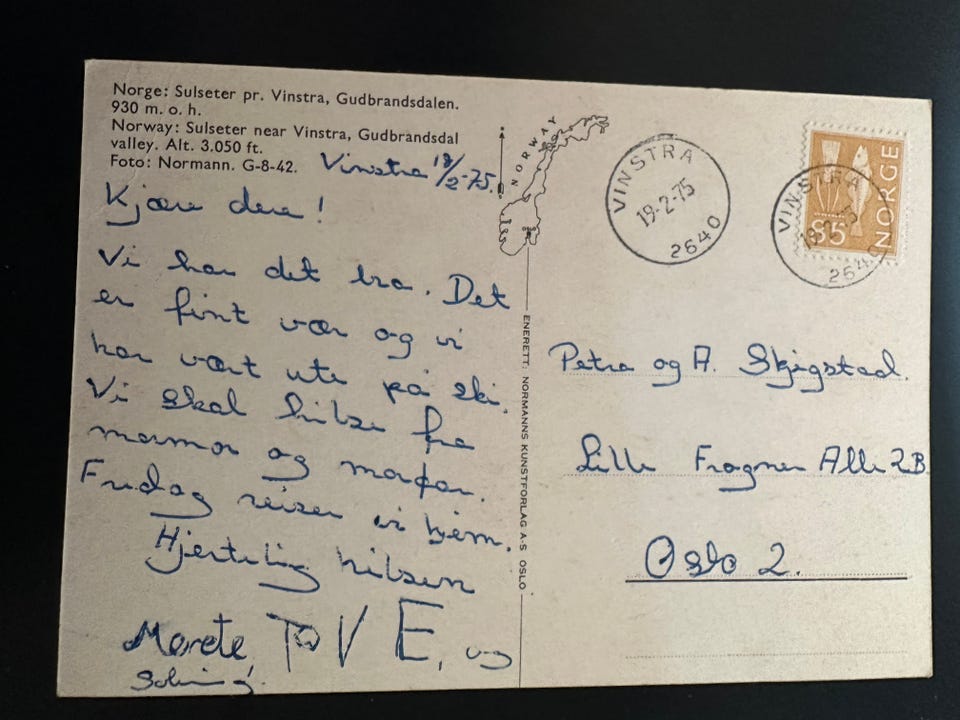 Norge: Sulseter pr. Vinstra, Gudbrandsdalen.
930 m. o. h.
Norway: Sulseter near Vinstra, Gudbrandsdal
valley. Alt. 3.050 ft.
Foto: Normann. G-8-42.
Vinstra 18/2-75.
Kjære dere!
Vi har det bra. Det
er fint vær og vi
har vært ute på ski.
Vi skal hilse fra
mormor og morfar.
Fredag reiser vi hjem.
Hjertelig hilsen
Merete, TOVE, og
NORWAY
OSLO
ENERETT: NORMANNS KUNSTFORLAG A-S OSLO
VINSTRA
19-2-75
2640
NORGE
85
VINSTRA
2640
Petra og A. Skjigstad.
Lille Frogner Alle 2B
Oslo 2.